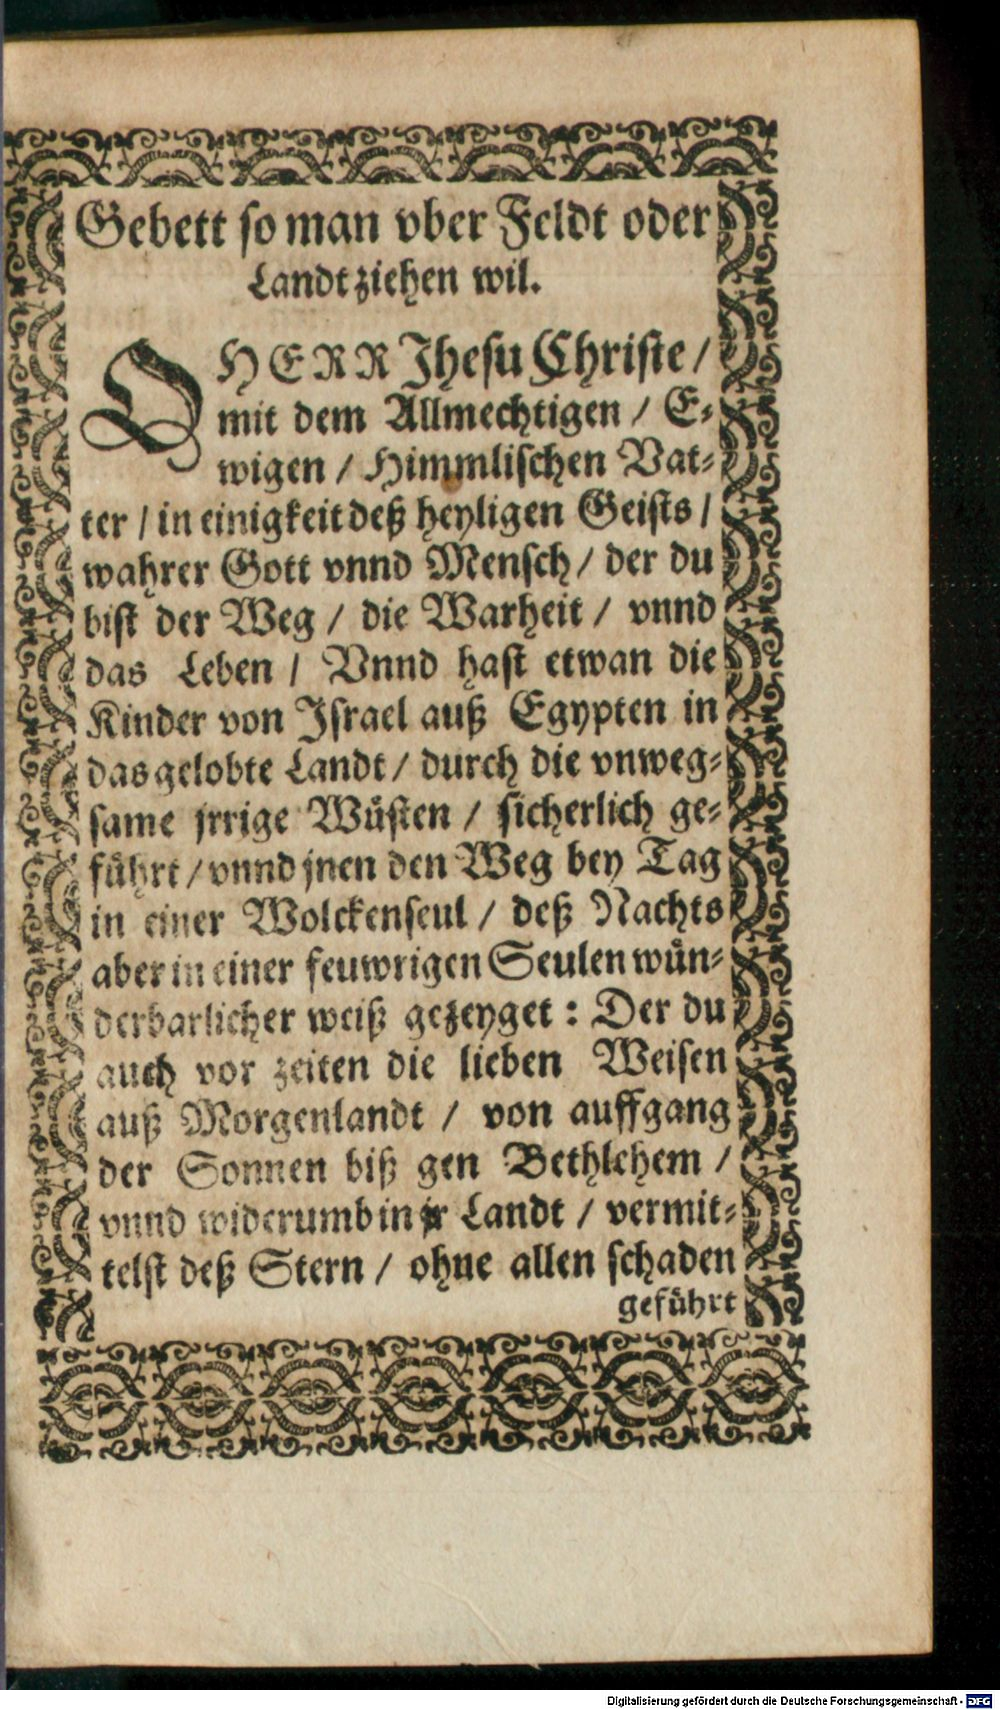 Gebett so man vber Feldt oder
Landt ziehen wil.
O HERR Jhesu Christe /
mit dem Allmechtigen / E-
wigen / Himmlischen Vat-
ter / in einigkeit deß heyligen Geists /
wahrer Gott vnnd Mensch / der du
bist der Weg / die Warheit / vnnd
das Leben / Vnnd hast etwan die
Kinder von Israel auß Egypten in
das gelobte Landt / durch die vnweg-
same jrrige Wüsten / sicherlich ge-
führt / vnnd jnen den Weg bey Tag
in einer Wolckenseul / deß Nachts
aber in einer feuwrigen Seulen wün-
derbarlicher weiß gezeyget : Der du
auch vor zeiten die lieben Weisen
auß Morgenlandt / von auffgang
der Sonnen biß gen Bethlehem /
vnnd widerumb in jr Landt / vermit-
telst deß Stern / ohne allen schaden
geführt
Digitalisierung gefördert durch die Deutsche Forschungsgemeinschaft - DFG